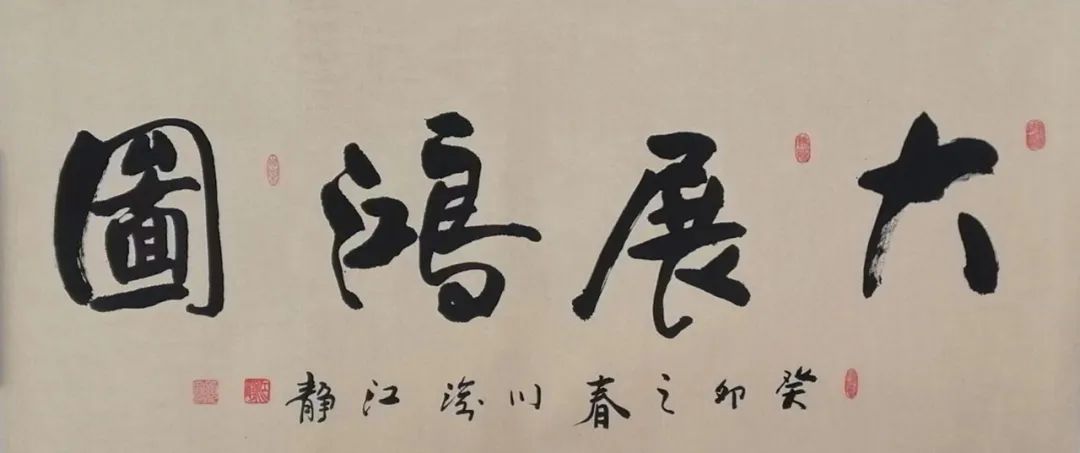 大展鴻圖
癸卯之春川渝江静